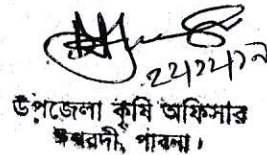 উপজেলা কৃষি অফিসার
ঈশ্বরদী, পাবনা।